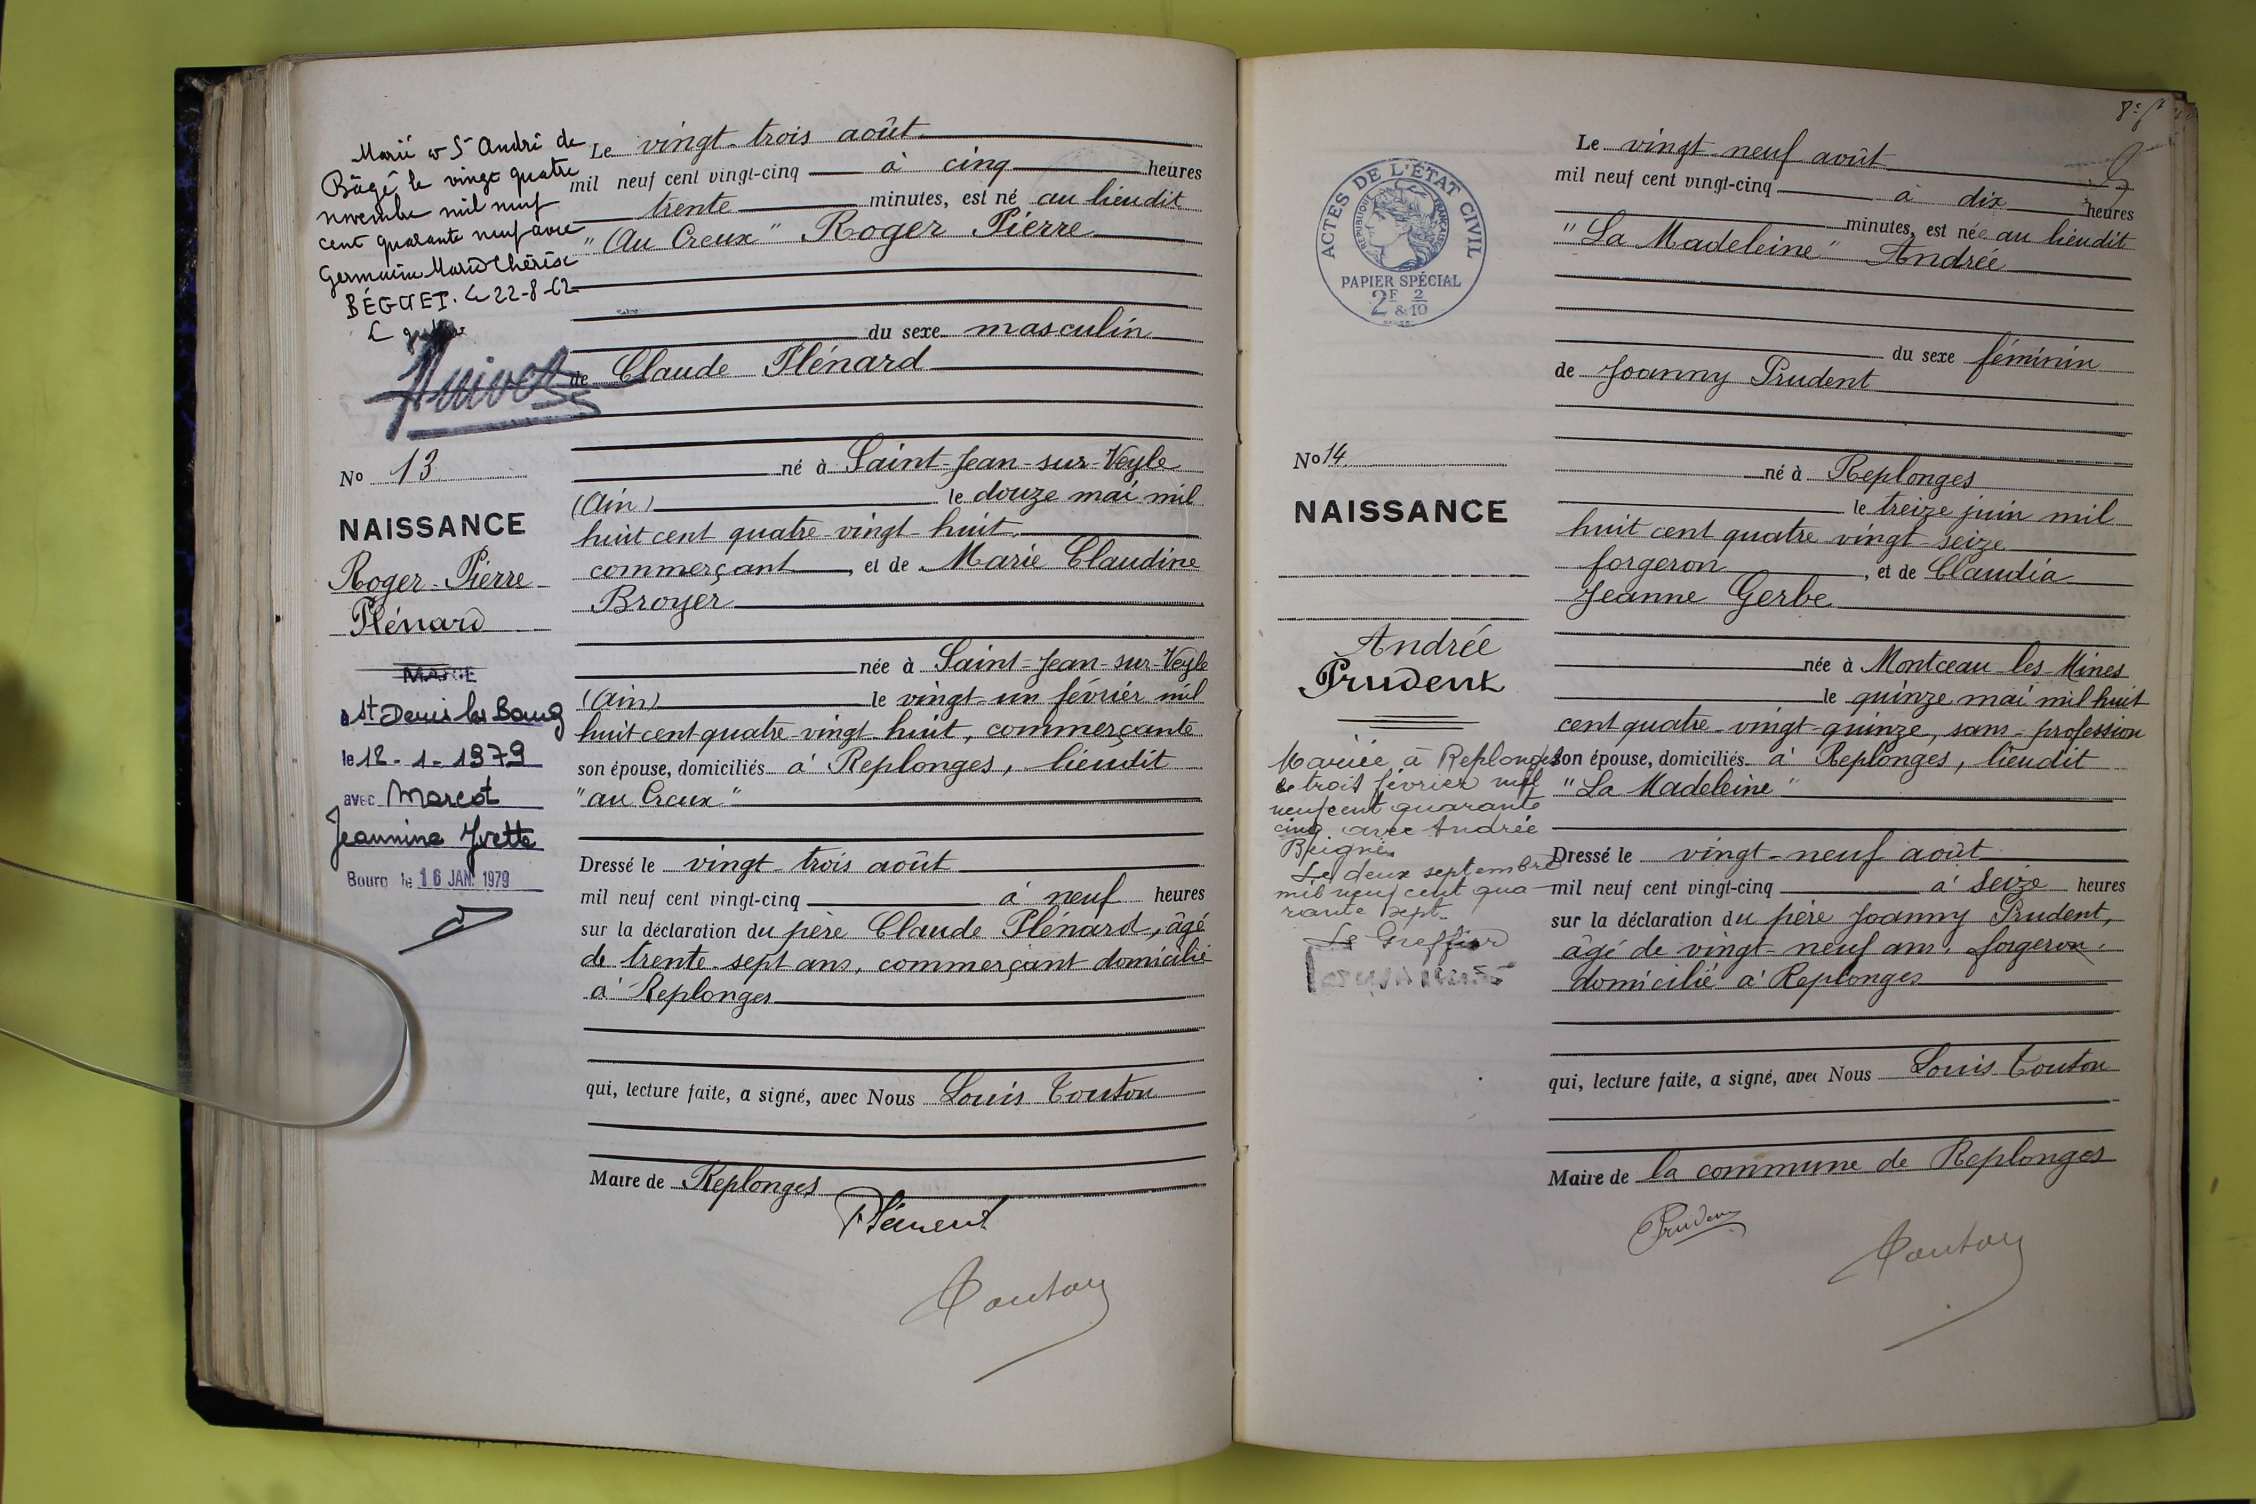 Marié à St André de
Bâgé le vingt quatre
novembre mil neuf
cent quarante neuf avec
Germaine Marie Thérèse
BÉGUET. Le 22-8-62
Le
No 13
NAISSANCE
Roger-Pierre
Plénard
MARIÉ
à St Denis les Bourg
le 12-1-1979
avec Marcot
Jeannine Yvette
Bourg le 16 JAN. 1979
Le vingt-trois août
mil neuf cent vingt-cinq à cinq heures
trente minutes, est né au lieudit
"Au Creux" Roger Pierre
du sexe masculin
de Claude Plénard
né à Saint-Jean-sur-Veyle
(Ain) le douze mai mil
huit cent quatre-vingt-huit
commerçant, et de Marie Claudine
Broyer
née à Saint-Jean-sur-Veyle
(Ain) le vingt-un février mil
huit cent quatre-vingt-huit, commerçante
son épouse, domiciliés à Replonges, lieudit
"au Creux"
Dressé le vingt-trois août
mil neuf cent vingt-cinq à neuf heures
sur la déclaration du père Claude Plénard, âgé
de trente-sept ans, commerçant domicilié
à Replonges
qui, lecture faite, a signé, avec Nous Louis Touton
Maire de Replonges
Plénard
Touton
8e
ACTES DE L'ÉTAT CIVIL
RÉPUBLIQUE FRANÇAISE
PAPIER SPÉCIAL
2F & 2/10
No 14
NAISSANCE
Andrée
Prudent
Mariée à Replonges
le trois février mil
neuf cent quarante
cinq avec André
Le deux septembre
mil neuf cent qua-
rante sept.
Le Greffier
Le vingt-neuf août
mil neuf cent vingt-cinq à dix heures
minutes, est née au lieudit
"La Madeleine" Andrée
du sexe féminin
de Joanny Prudent
né à Replonges
le treize juin mil
huit cent quatre-vingt-seize
forgeron, et de Claudia
Jeanne Gerbe
née à Montceau-les-Mines
le quinze mai mil huit
cent quatre-vingt-quinze, sans-profession
son épouse, domiciliés à Replonges, lieudit
"La Madeleine"
Dressé le vingt-neuf août
mil neuf cent vingt-cinq à seize heures
sur la déclaration du père Joanny Prudent,
âgé de vingt-neuf ans, forgeron,
domicilié à Replonges
qui, lecture faite, a signé, avec Nous Louis Touton
Maire de la commune de Replonges
Prudent
Touton